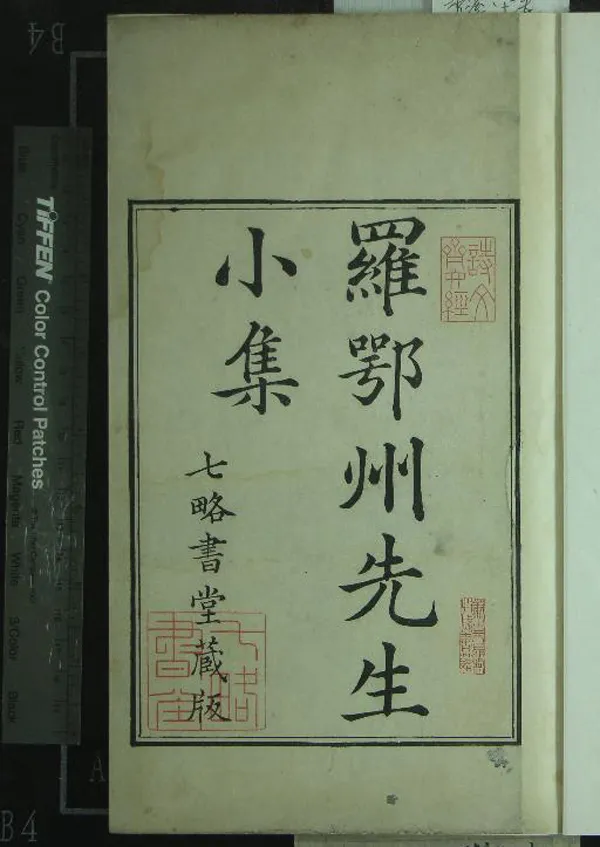 羅鄂州先生
小集
七略書堂藏版
七略書堂
TIFFEN Color Control Patches
Blue
Cyan
Green
Yellow
Red
Magenta
White
3/Color
Black
B4
A
B4